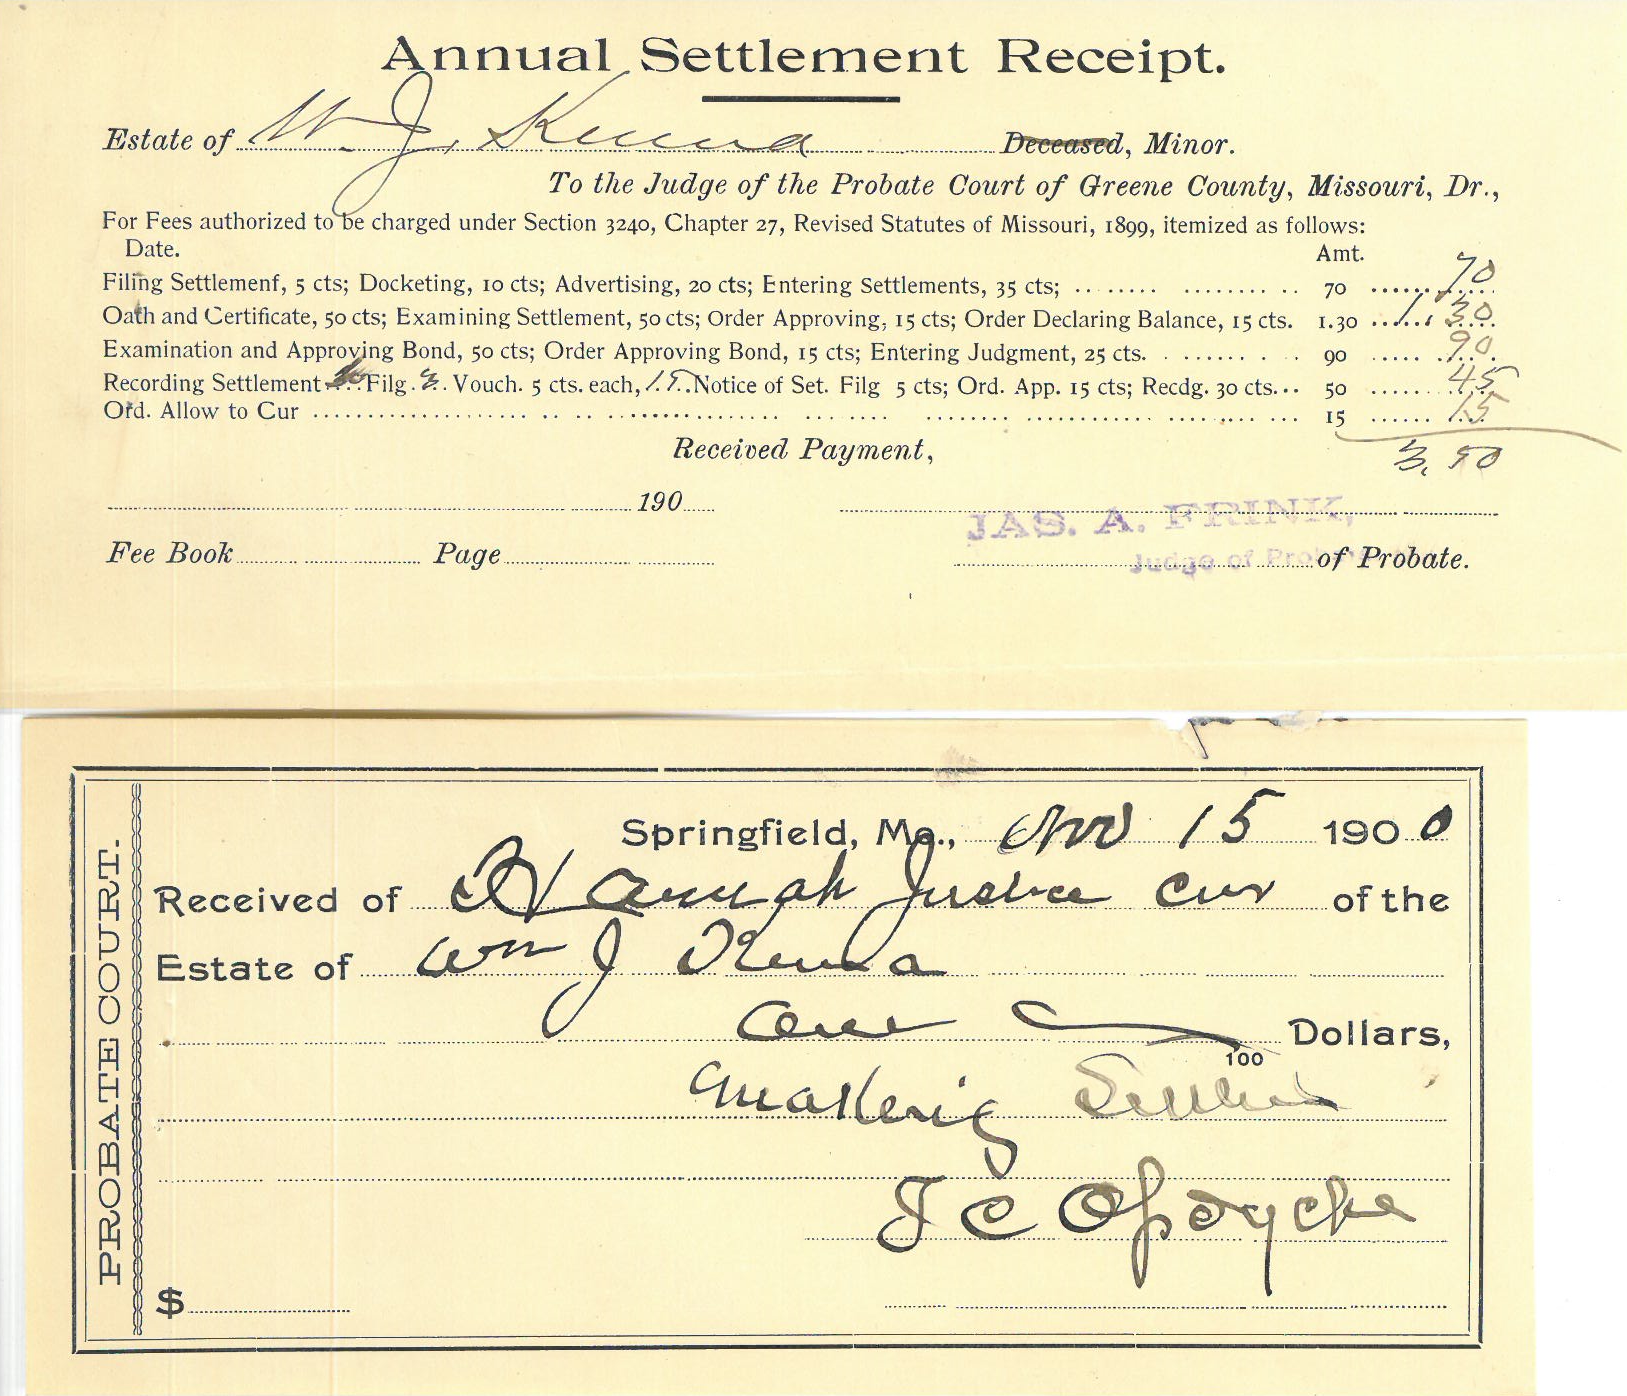 Annual Settlement Receipt.
Estate of W. J. Kenna Deceased, Minor.
To the Judge of the Probate Court of Greene County, Missouri, Dr.,
For Fees authorized to be charged under Section 3240, Chapter 27, Revised Statutes of Missouri, 1899, itemized as follows:
Date. Amt.
Filing Settlement, 5 cts; Docketing, 10 cts; Advertising, 20 cts; Entering Settlements, 35 cts; 70 70
Oath and Certificate, 50 cts; Examining Settlement, 50 cts; Order Approving, 15 cts; Order Declaring Balance, 15 cts. 1.30 1.30
Examination and Approving Bond, 50 cts; Order Approving Bond, 15 cts; Entering Judgment, 25 cts. 90 90
Recording Settlement Filg. 3 Vouch. 5 cts. each, 15 Notice of Set. Filg 5 cts; Ord. App. 15 cts; Recdg. 30 cts... 50 45
Ord. Allow to Cur 15 15
3.50
Received Payment,
190
JAS. A. FRINK,
Fee Book Page Judge of Probate of Probate.
PROBATE COURT.
Springfield, Mo., Nov 15 1900
Received of Hannah Justice Cur of the
Estate of Wm J Kenna
One 100 Dollars,
Making Settle
J C Opdycke
$